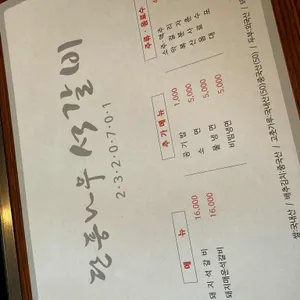 단풍나무 석갈비
2·3·2·0·7·0·1
메 뉴
돼지석갈비 16,000
돼지매운석갈비 16,000
추가메뉴
공기밥 1,000
소 면 5,000
물냉면 5,000
비빔냉면 5,000
주류·음료수
소주·맥주
막 걸 리
복 분 자
산 사 춘
음 료 수
쌀:국내산 / 배추김치:중국산 / 고춧가루:국내산(50)중국산(50) / 두부:외국산 /